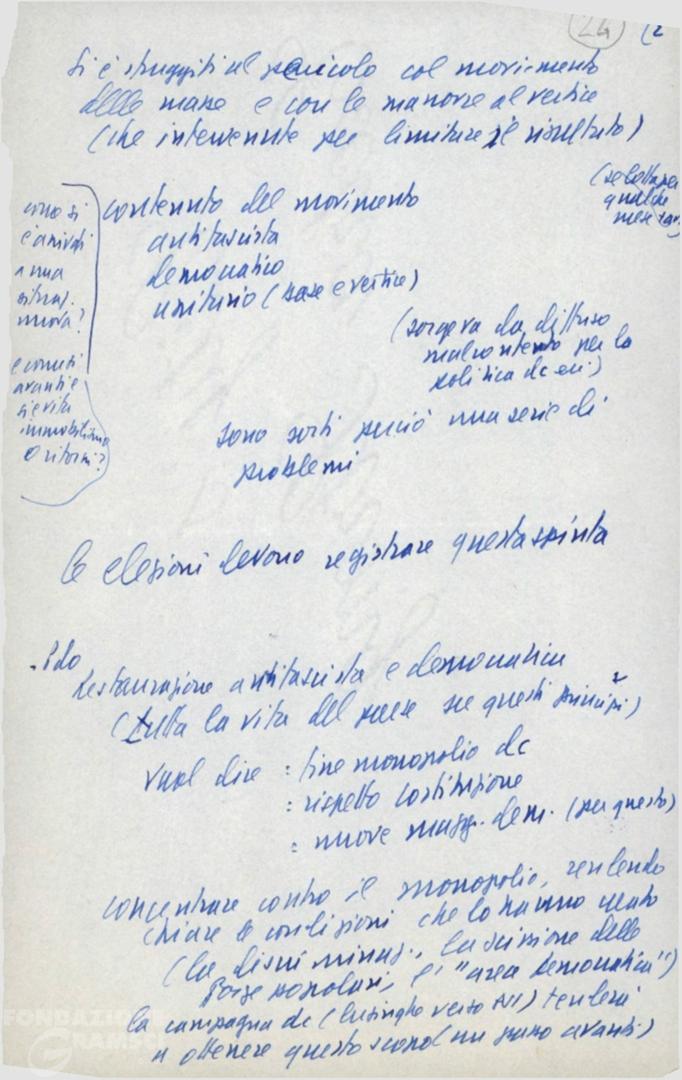 24 (2
Si è sfuggiti al pericolo col movimento
delle masse e con le manovre al vertice
(che intervennte per limitare il risultato)
(se
qualche
mese
contenuto del movimento
antifascista
democratico
unitario (base e vertice)
come si
è arrivati
a una
situaz.
nuova?
e come si
avanti e
si evita
immobilismo
o ritorni?
(sorgeva da diffuso
malcontento per la
politica dc ecc.)
sono sorti perciò una serie di
problemi
le elezioni devono registrare questa spinta
Restaurazione antifascista e democratica
(tutta la vita del paese su questi principi)
vuol dire : fine monopolio dc
: rispetto costituzione
: nuove magg. dem. (per questo)
concentrare contro il monopolio, rendendo
chiare le condizioni che lo hanno creato
(la discriminaz., la scissione delle
forze popolari, l'"area democratica")
la campagna dc (lusinghe verso ) tenderà
a ottenere questo scopo (un passo avanti)
FONDAZIONE
GRAMSCI